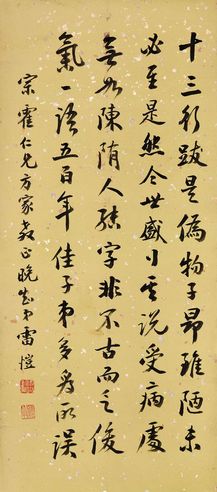 十三行跋是偽物子昂雖陋未
必至是然今世盛行其說受病處
無如陳隋人結字非不古而乏俊
氣一語五百年佳子弟多為所誤
宗霍仁兄方家教正晚弟雷愷